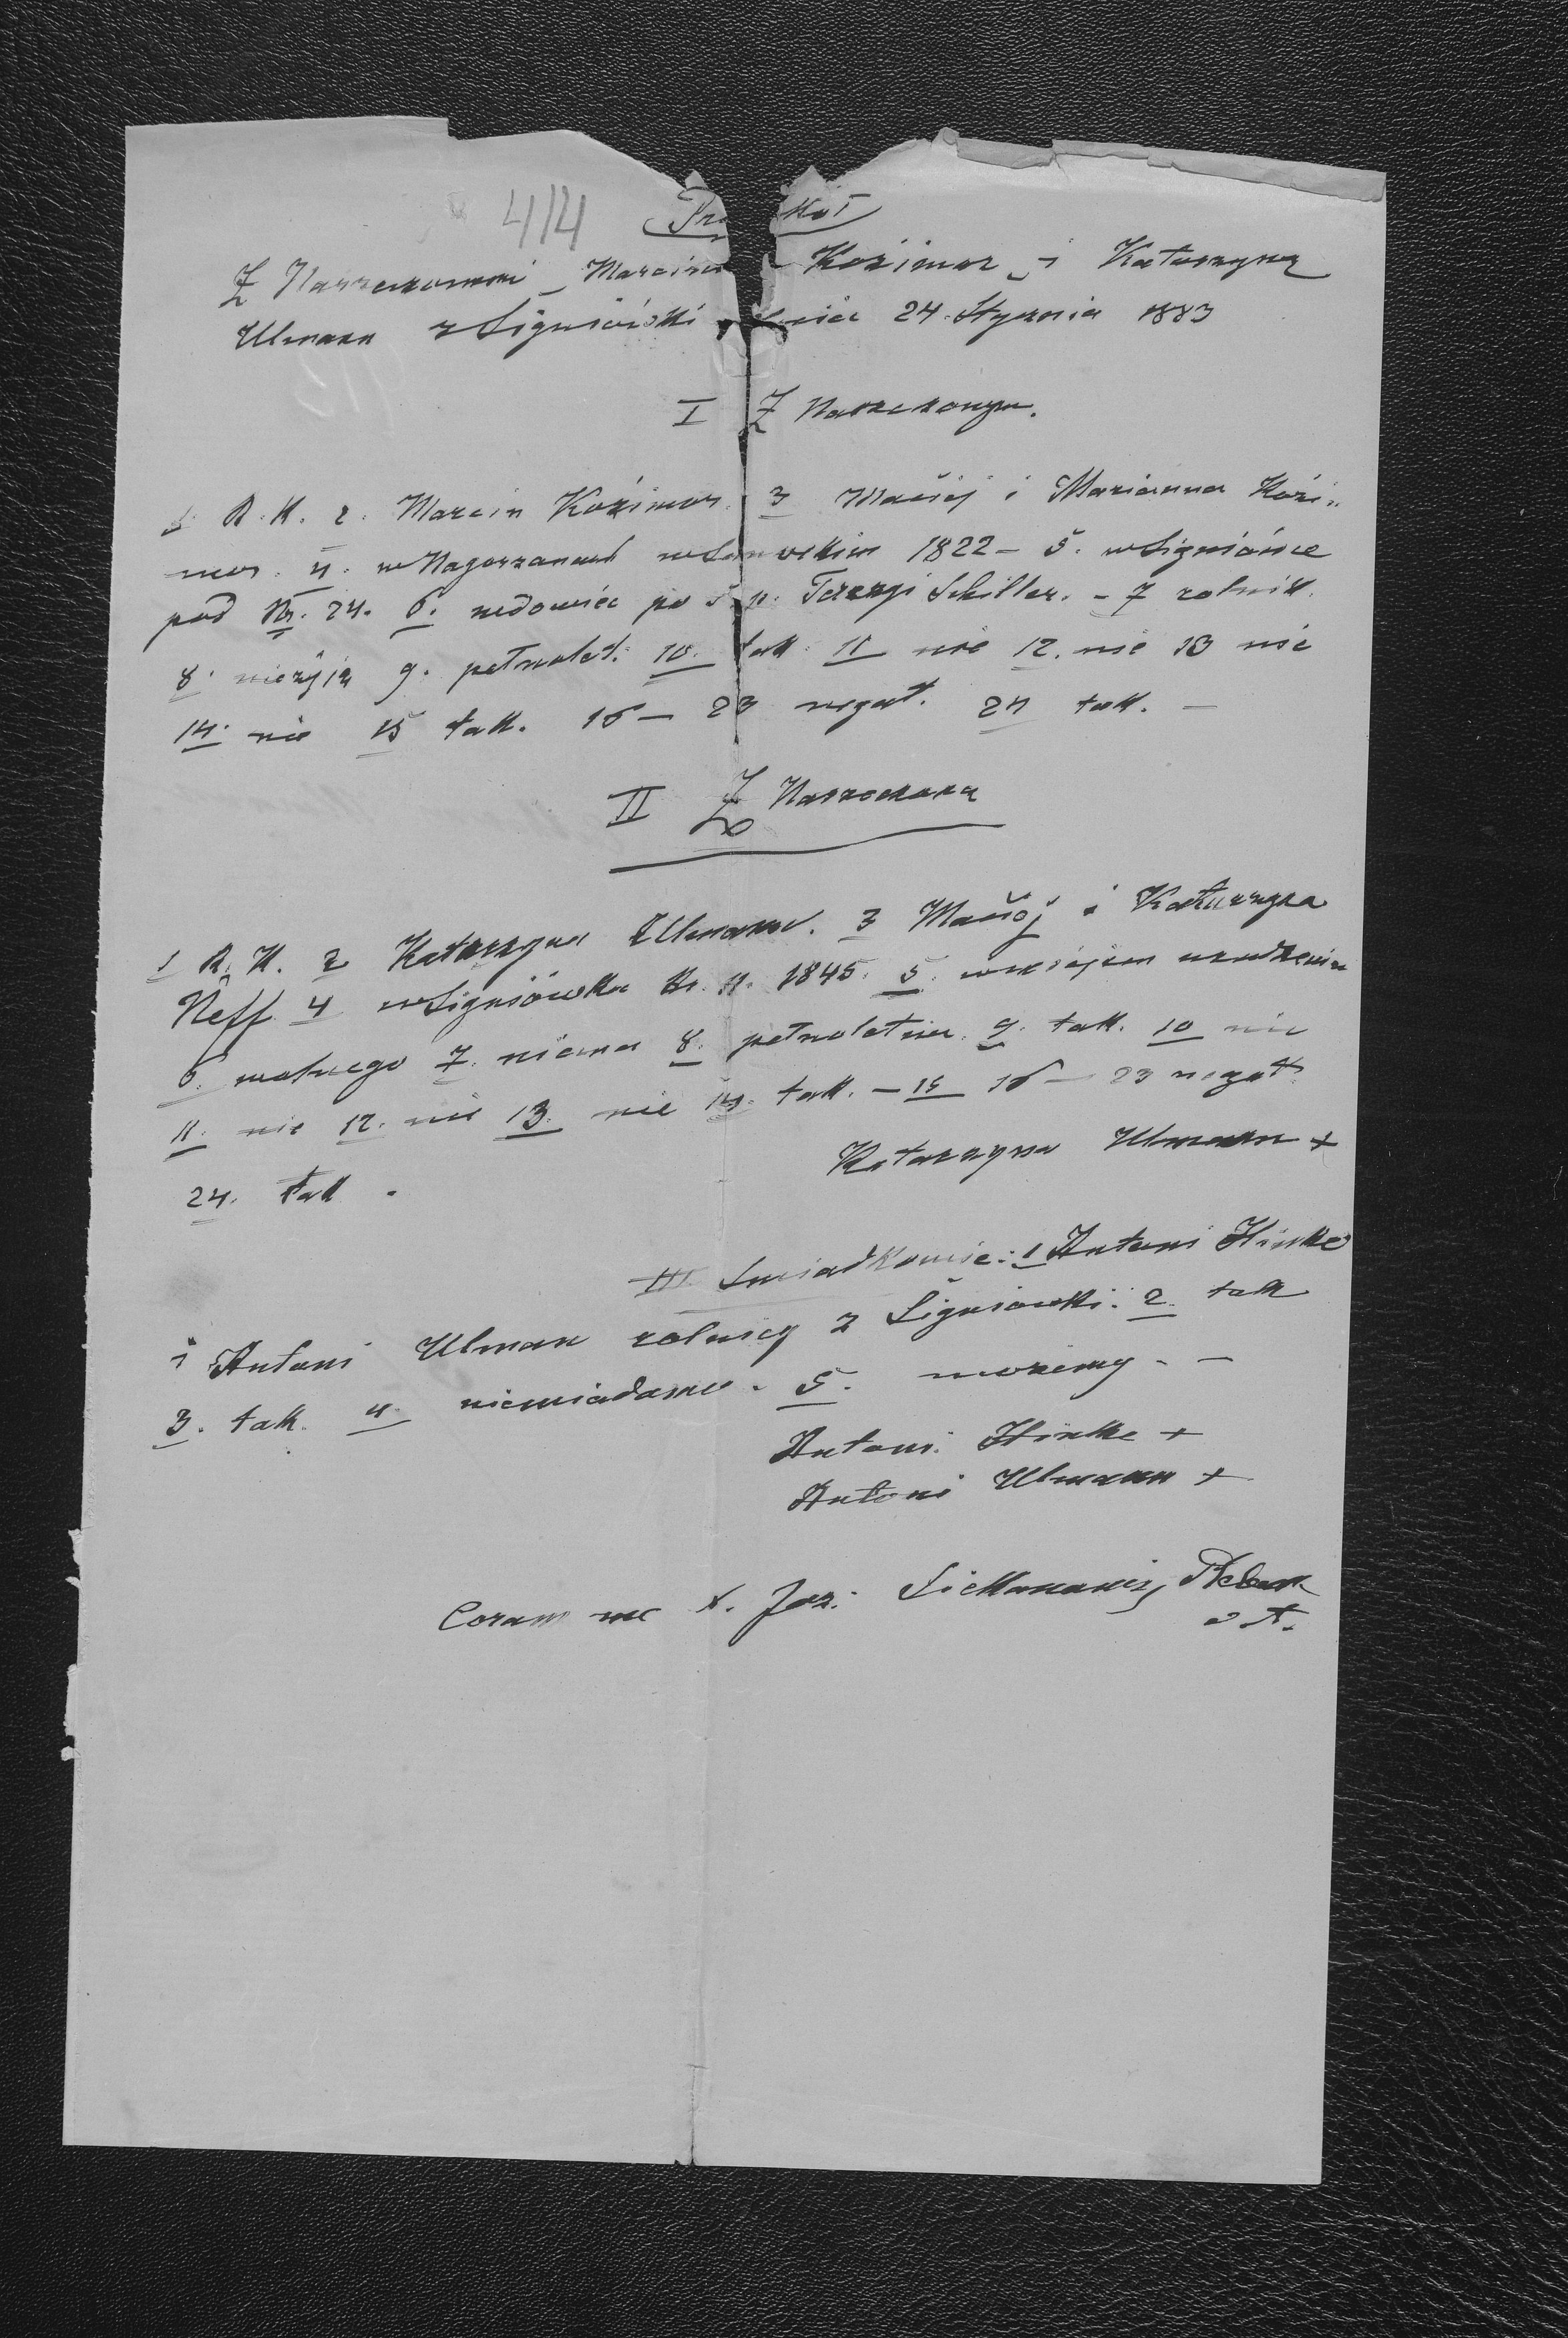 414
Pro kół
Z Narzeczonemi Marcin Kozimor i Katarzyną
Ulmann z Signiówki dnia 24 Stycznia 1883
I Z Narzeczonym.
1. R. K. 2. Marcin Kozimor. 3 Maciej i Marianna Kozi„
mor. 4. w Nagorzanach 1822 – 5. w Signiówce
pod Nr. 24. 6. wdowiec po ś. p. Terezyi Schiller. – 7 rolnik.
8. nieżyją 9. pełnolet. 10. tak 11 nie 12. nie 13 nie
14. nie 15 tak. 16 – 23 negat. 24 tak. –
II Z Narzeczoną
1 R. K. 2 Katarzyna Ulmann. 3 Maciej i Katarzyna
Neff. 4 w Signiówka Nr. 11. 1845. 5.
6. wolnego 7. niema 8. pełnoletnia. 9. tak. 10 nie
11. nie 12. nie 13. nie 14. tak. – 15 16 – 23 negat.
24. tak.
Katarzyna Ulmann +
III Swiadkowie: 1 Antoni Hinke
i Antoni Ulman rolnicy z Signiowki. 2. tak
3. tak. 4. niewiadomo. 5. możemy. –
Antoni Hinke +
Antoni Ulmann +
Coram me X. Joz. Pleban